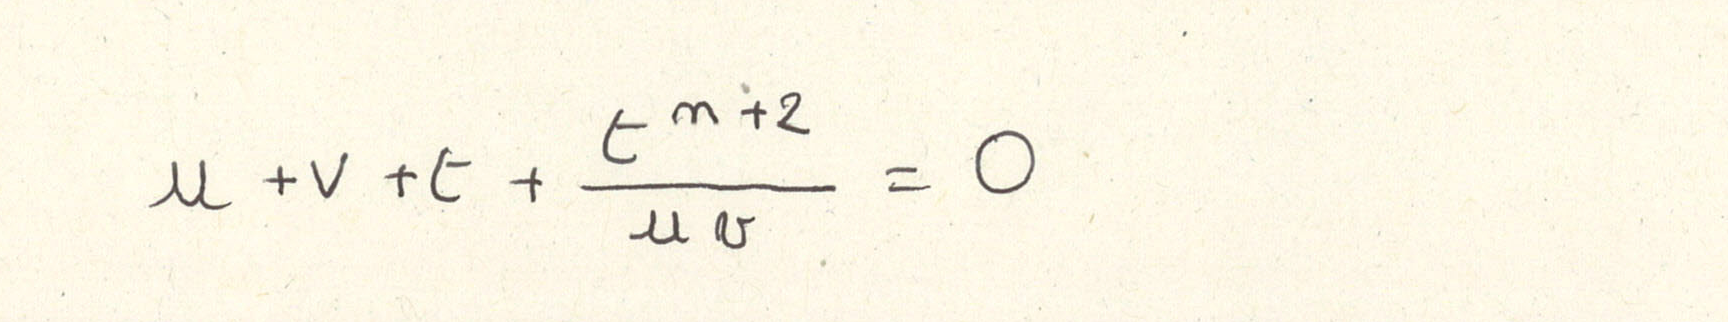 u + v + t + \frac{t^{n+2}}{uv} = 0